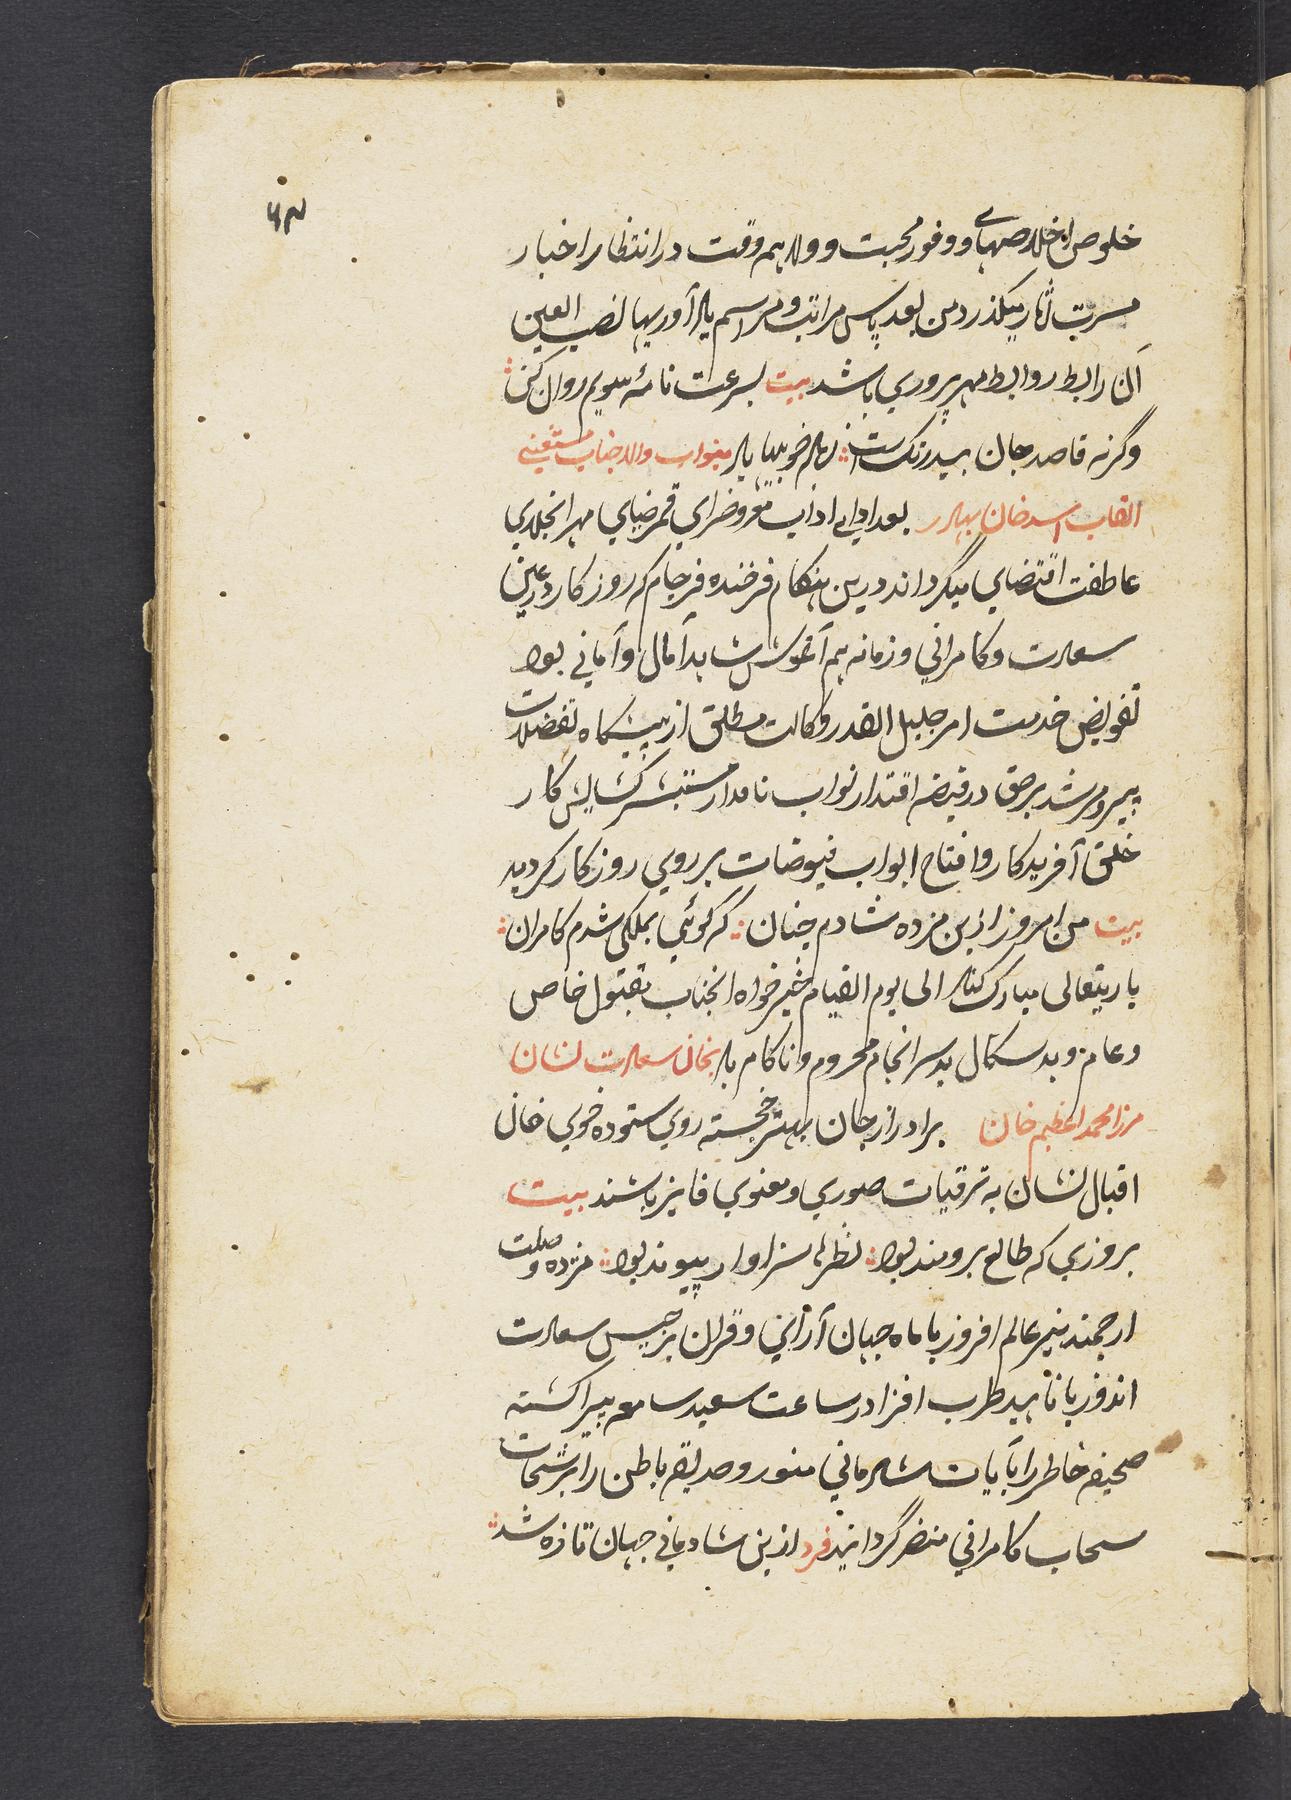 ۶۳
خلوص اخلاصهای و وفور محبت و ولا همه وقت در انتظار اخبار
مسرت آثار میکذرد من بعد پاس مراتب و مراسم یاد آوریها نصب العین
آن رابط روابط مهر پروری باشد بیت بسرعت نامهٔ سویم روان کن
وگرنه قاصد جان بیدرنک است زیاده خوبیها باد بنواب والاجناب مستغنی
القاب اسد خان بهادر بعد ادای اداب معروض رای قمر ضیای مهر انجلای
عاطفت اقتضای میگرداند درین هنکام فرخنده فرجام که روزکار در عین
سعادت و کامرانی و زمانه هم آغوش شاهد آمال و آمانی بود
تفویض خدمت امر جلیل القدر وکالت مطلق از پیشکاه تفضلات
پیر و مرشد برحق در قبضه اقتدار نواب نامدار مستبشر کشایش کار
خلق آفریدکار و افتاح ابواب فیوضات بر روی روزکار کردید
بیت من امروز ازین مژده شادم چنان که گوئی بملکی شدم کامران
باریتعالی مبارک کناد الی یوم القیام خیر خواه انجناب مقبول خاص
و عام و بد سکال بد سرانجام محروم و ناکام باد بخان سعادت نشان
مرزا محمد اعظیم خان برادر از جان بهتر خجسته روی ستوده خوی خان
اقبال نشان به ترقیات صوری و معنوی فایز باشند بیت
بروزی که طالع برومند بود نظرها سزاوار پیوند بود مژده وصلت
ارجمند نیر عالم افروز با ماه جهان آرائی و قران برجیس سعادت
اندوز با ناهید طرب افزا در ساعت سعید سامعه پیرا کشته
صحیفه خاطر را بآیات شادمانی منور و حدیقه باطن را برشحات
سحاب کامرانی منضر گردانید فرد ازین شادمانی جهان تازه شد